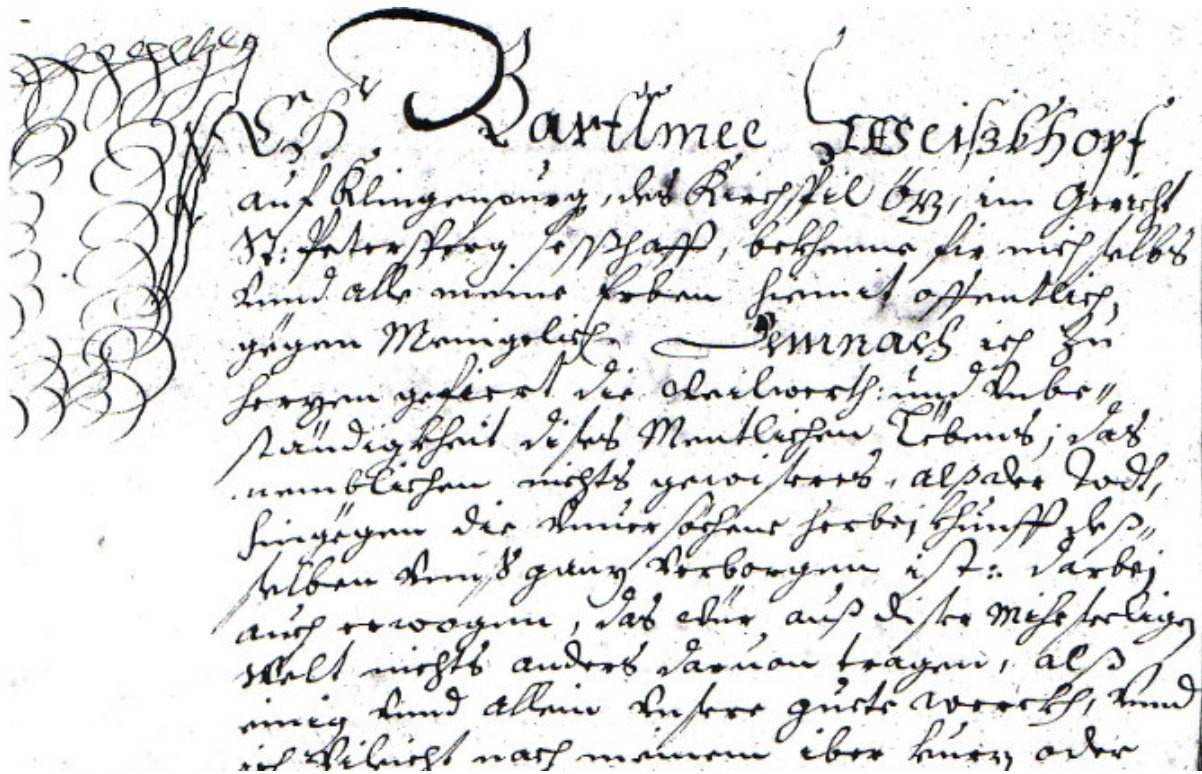 Ich Bartlmee Weißkhopf
auf Klingenpurg, des Kirchspil Öz, im Gericht
St: Petersperg seßhafft, bekhenne fir mich selbs
vnnd alle meine Erben hiemit offentlich
gegen Menigelich. Demnach ich zu
herzen gefiert die und vnbe„
ständigkheit dises Lebens, das
nemblichen nichts gewisseres, alß der Todt,
hingegen die vnuersechene herbej khunfft deß„
selben vnnß ganz verborgen ist: darbej
auch erwogen, das wür auß diser Miheseeligen
Welt nichts anders daruon tragen, alß
einig vnnd allein vnsere guete werckh, vnnd
ich Vileicht nach meinem iber kurz oder